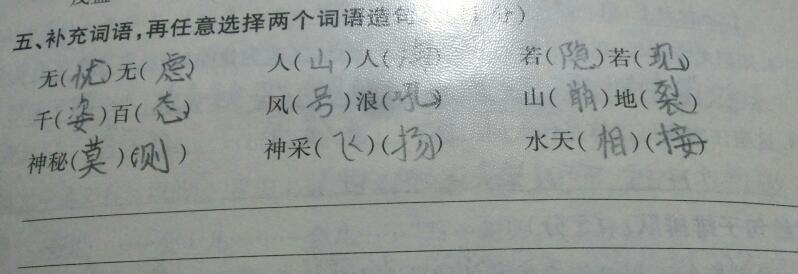 五、补充词语,再任意选择两个词语造句 分)
无(忧)无(虑) 人(山)人(海) 若(隐)若(现)
千(姿)百(态) 风(号)浪(吼) 山(崩)地(裂)
神秘(莫)(测) 神采(飞)(扬) 水天(相)(接)